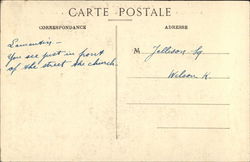 CARTE POSTALE
CORRESPONDANCE
ADRESSE
Lamentin —
You see just in front
of the street the church.
M Jellison Sq.
Wilson K.